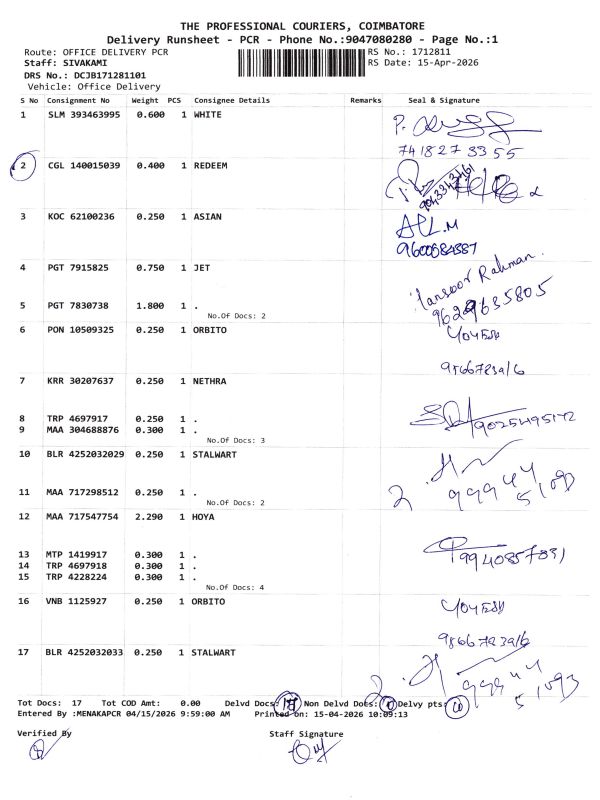 THE PROFESSIONAL COURIERS, COIMBATORE
Delivery Runsheet - PCR - Phone No.:9047080280 - Page No.:1
Route: OFFICE DELIVERY PCR RS No.: 1712811
Staff: SIVAKAMI RS Date: 15-Apr-2026
DRS No.: DCJB171281101
Vehicle: Office Delivery
S No Consignment No Weight PCS Consignee Details Remarks Seal & Signature
1 SLM 393463995 0.600 1 WHITE
7418273355
2 CGL 140015039 0.400 1 REDEEM
3 KOC 62100236 0.250 1 ASIAN
9600084887
4 PGT 7915825 0.750 1 JET
Mansoor Rahman
5 PGT 7830738 1.800 1 . 9629635805
No.Of Docs: 2
6 PON 10509325 0.250 1 ORBITO
7 KRR 30207637 0.250 1 NETHRA
8 TRP 4697917 0.250 1 .
9 MAA 304688876 0.300 1 .
No.Of Docs: 3
10 BLR 4252032029 0.250 1 STALWART
99944
11 MAA 717298512 0.250 1 . 2 51093
No.Of Docs: 2
12 MAA 717547754 2.290 1 HOYA
13 MTP 1419917 0.300 1 . 9940857831
14 TRP 4697918 0.300 1 .
15 TRP 4228224 0.300 1 .
No.Of Docs: 4
16 VNB 1125927 0.250 1 ORBITO
17 BLR 4252032033 0.250 1 STALWART
99944
51093
Tot Docs: 17 Tot COD Amt: 0.00 Delvd Docs: Non Delvd Docs: Delvy pts: 10
Entered By :MENAKAPCR 04/15/2026 9:59:00 AM Printed on: 15-04-2026 10:09:13
Verified By Staff Signature